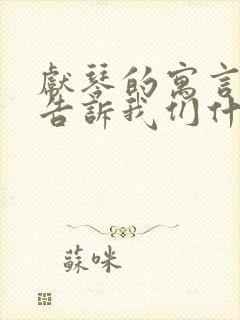 獻琴的寓言
告訴我们什
蘇咪